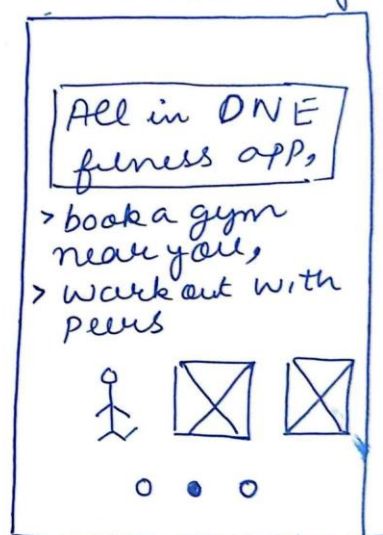 All in ONE
fitness app,
> book a gym
near you,
> workout with
peers